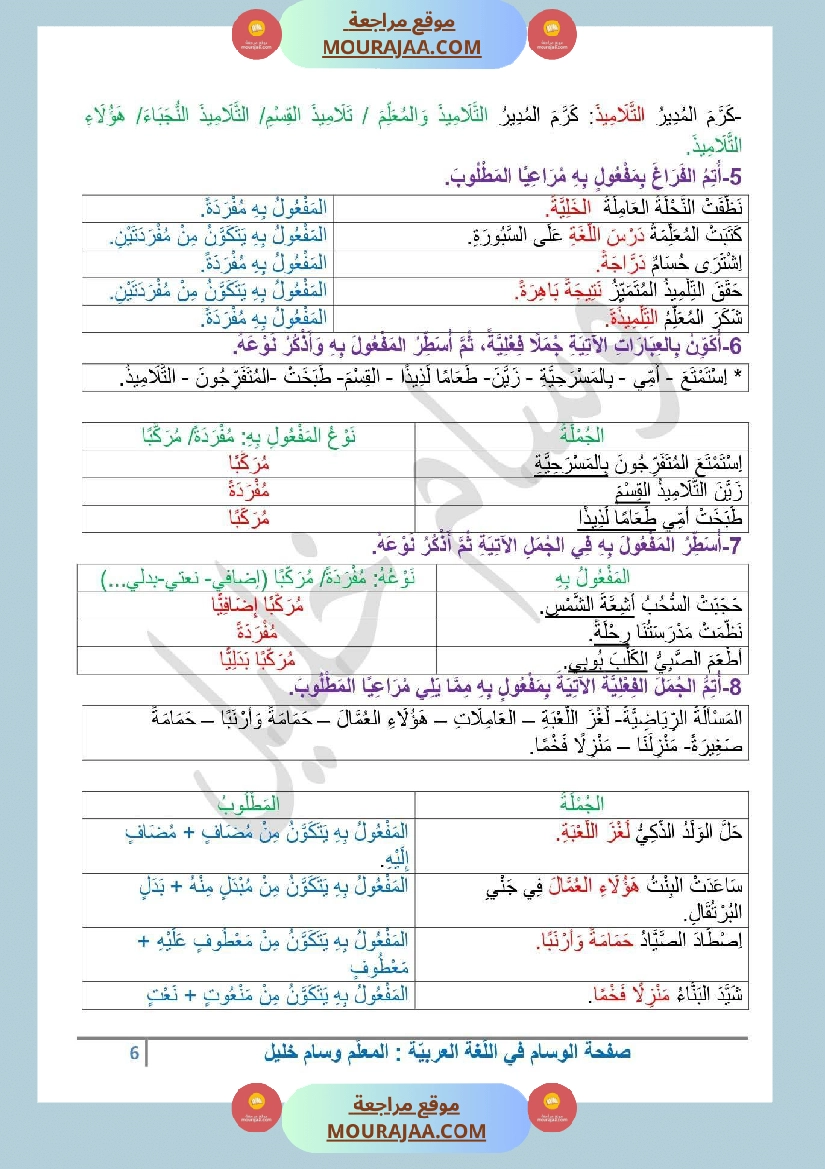 موقع مراجعة
MOURAJAA.COM
-كَرَّمَ المُدِيرُ التَّلَامِيذَ: كَرَّمَ المُدِيرُ التَّلَامِيذَ وَالمُعَلِّمَ / تَلَامِيذَ القِسْمِ/ التَّلَامِيذَ النُّجَبَاءَ/ هَؤُلَاءِ
التَّلَامِيذَ.
5-أُتِمُّ الفَرَاغَ بِمَفْعُولٍ بِهِ مُرَاعِيًا المَطْلُوبَ.
نَظَّفَتْ النَّحْلَةُ العَامِلَةُ الخَلِيَّةَ. المَفْعُولُ بِهِ مُفْرَدَةٌ.
كَتَبَتْ المُعَلِّمَةُ دَرْسَ اللُّغَةِ عَلَى السَّبُورَةِ. المَفْعُولُ بِهِ يَتَكَوَّنُ مِنْ مُفْرَدَتَيْنِ.
اِشْتَرَى حُسَامٌ دَرَّاجَةً. المَفْعُولُ بِهِ مُفْرَدَةٌ.
حَقَّقَ التِّلْمِيذُ المُتَمَيِّزُ نَتِيجَةً بَاهِرَةً. المَفْعُولُ بِهِ يَتَكَوَّنُ مِنْ مُفْرَدَتَيْنِ.
شَكَرَ المُعَلِّمُ التِّلْمِيذَةَ. المَفْعُولُ بِهِ مُفْرَدَةٌ.
6-أُكَوِّنُ بِالعِبَارَاتِ الآتِيَةِ جُمَلًا فِعْلِيَّةً، ثُمَّ أُسَطِّرُ المَفْعُولَ بِهِ وَأَذْكُرُ نَوْعَهُ.
* اِسْتَمْتَعَ - أُمِّي - بِالمَسْرَحِيَّةِ - زَيَّنَ- طَعَامًا لَذِيذًا - القِسْمَ- طَبَخَتْ -المُتَفَرِّجُونَ - التَّلَامِيذُ.
الجُمْلَةُ نَوْعُ المَفْعُولِ بِهِ: مُفْرَدَةٌ/ مُرَكَّبًا
اِسْتَمْتَعَ المُتَفَرِّجُونَ بِالمَسْرَحِيَّةِ مُرَكَّبًا
زَيَّنَ التَّلَامِيذُ القِسْمَ مُفْرَدَةٌ
طَبَخَتْ أُمِّي طَعَامًا لَذِيذًا مُرَكَّبًا
7-أُسَطِّرُ المَفْعُولَ بِهِ فِي الجُمَلِ الآتِيَةِ ثُمَّ أَذْكُرُ نَوْعَهُ.
المَفْعُولُ بِهِ نَوْعُهُ: مُفْرَدَةٌ/ مُرَكَّبًا (إضافي- نعتي-بدلي...)
حَجَبَتْ السُّحُبُ أَشِعَّةَ الشَّمْسِ. مُرَكَّبًا إِضَافِيًّا
نَظَّمَتْ مَدْرَسَتُنَا رِحْلَةً. مُفْرَدَةٌ
أَطْعَمَ الصَّبِيُّ الكَلْبَ بُوبِي. مُرَكَّبًا بَدَلِيًّا
8-أُتِمُّ الجُمَلَ الفِعْلِيَّةَ الآتِيَةَ بِمَفْعُولٍ بِهِ مِمَّا يَلِي مُرَاعِيًا المَطْلُوبَ.
المَسْأَلَةَ الرِّيَاضِيَّةَ- لُغْزَ اللُّعْبَةِ – العَامِلَاتِ – هَؤُلَاءِ العُمَّالَ – حَمَامَةً وَأَرْنَبًا – حَمَامَةً
صَغِيرَةً- مَنْزِلَنَا – مَنْزِلًا فَخْمًا.
الجُمْلَةُ المَطْلُوبُ
حَلَّ الوَلَدُ الذَّكِيُّ لُغْزَ اللُّعْبَةِ. المَفْعُولُ بِهِ يَتَكَوَّنُ مِنْ مُضَافٍ + مُضَافٍ
إِلَيْهِ.
سَاعَدَتْ البِنْتُ هَؤُلَاءِ العُمَّالَ فِي جَنْيِ المَفْعُولُ بِهِ يَتَكَوَّنُ مِنْ مُبْدَلٍ مِنْهُ + بَدَلٍ
البُرْتُقَالِ.
اِصْطَادَ الصَّيَّادُ حَمَامَةً وَأَرْنَبًا. المَفْعُولُ بِهِ يَتَكَوَّنُ مِنْ مَعْطُوفٍ عَلَيْهِ +
مَعْطُوفٍ
شَيَّدَ البَنَّاءُ مَنْزِلًا فَخْمًا. المَفْعُولُ بِهِ يَتَكَوَّنُ مِنْ مَنْعُوتٍ + نَعْتٍ
صفحة الوسام في اللّغة العربيّة : المعلّم وسام خليل 6
وسام خليل
موقع مراجعة
MOURAJAA.COM